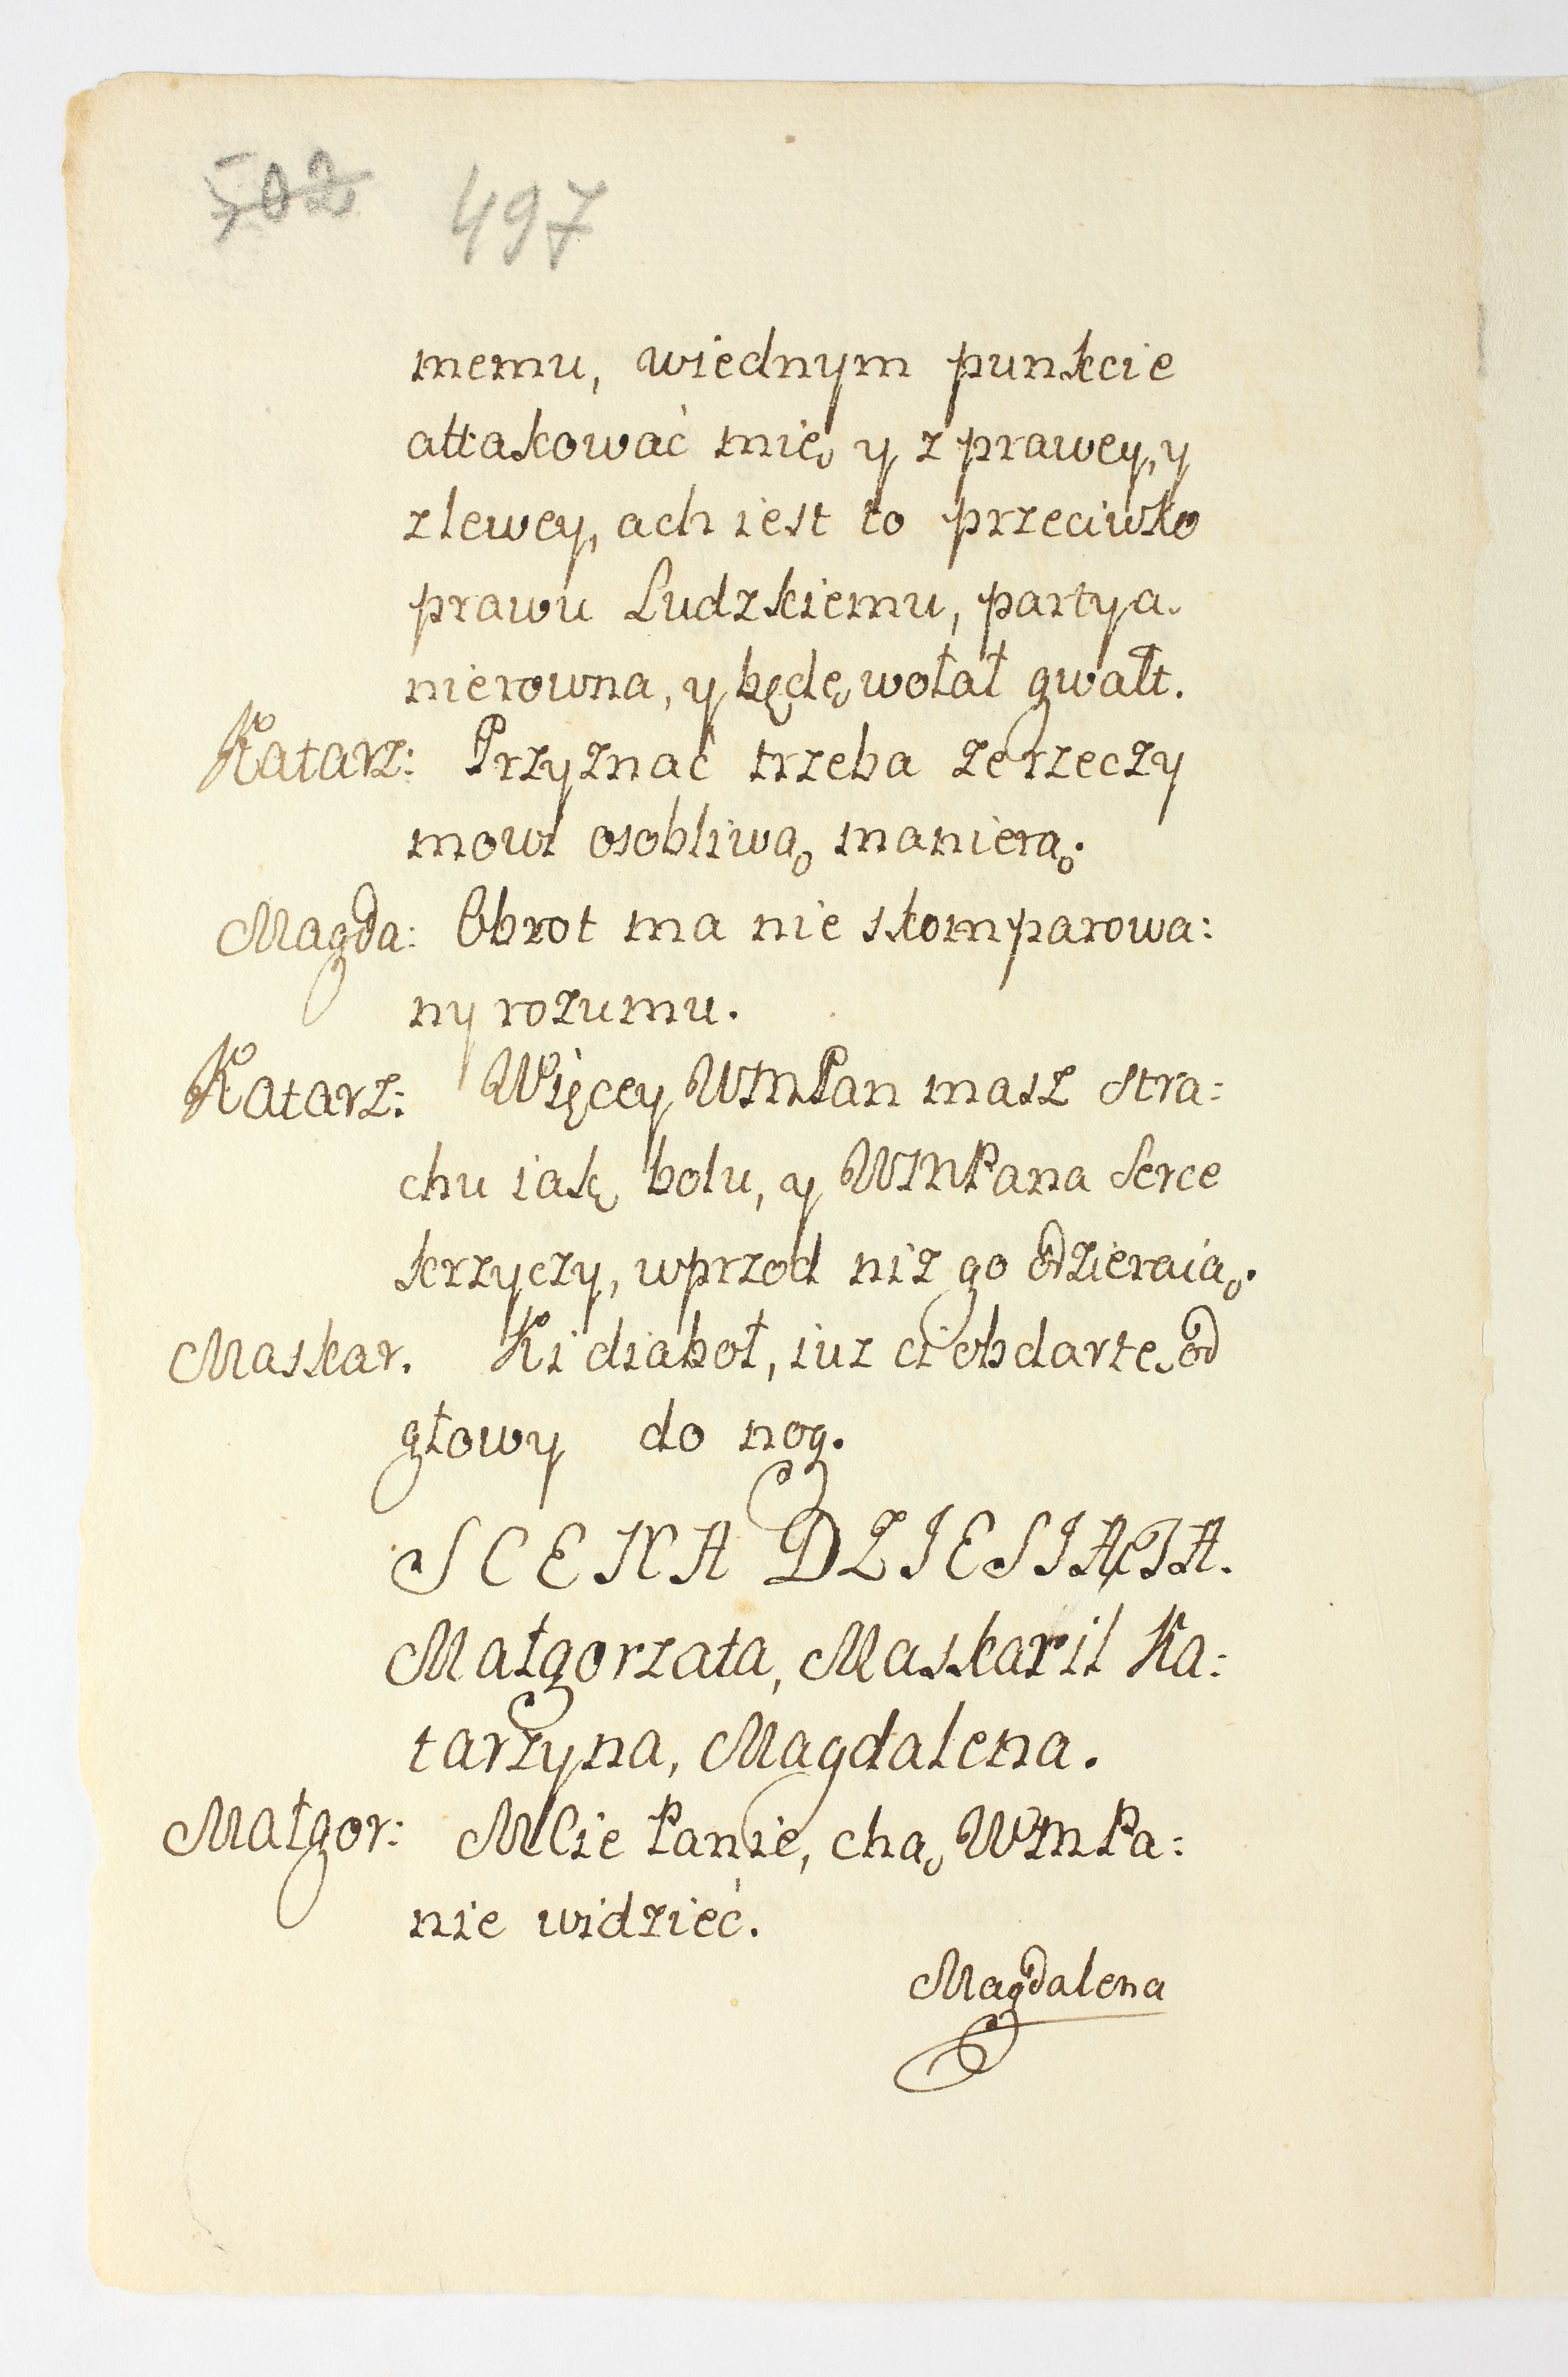 502 497
memu, wiednym punkcie
attakować mię y z prawey, y
zlewey, ach iest to przeciwko
prawu Ludzkiemu, partya.
nierowna, y będę wołał gwałt.
Katarz: Przyznać trzeba że rzeczy
mowi osobliwą manierą.
Magda: Obrot ma nie skomparowa:
ny rozumu.
Katarz: Więcey WMPan masz stra:
chu iak bolu, y WMPana Serce
krzyczy, wprzod niż go odzieraią.
Maskar. Ki diaboł, iuz ci obdarte od
głowy do nog.
SCENA DZIESIĄTA.
Małgorzata, Maskaril Ka:
tarzyna, Magdalena.
Małgor: MCie Panie, chą WMPa:
nie widzieć.
Magdalena